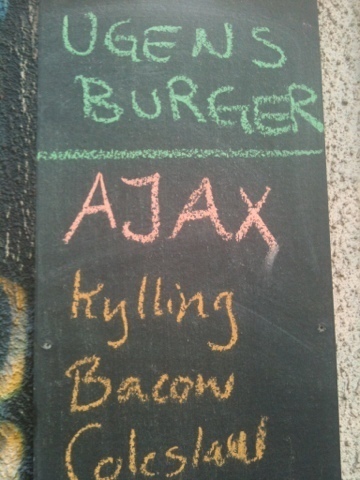 UGENS
BURGER
AJAX
Kylling
Bacon
Coleslaw